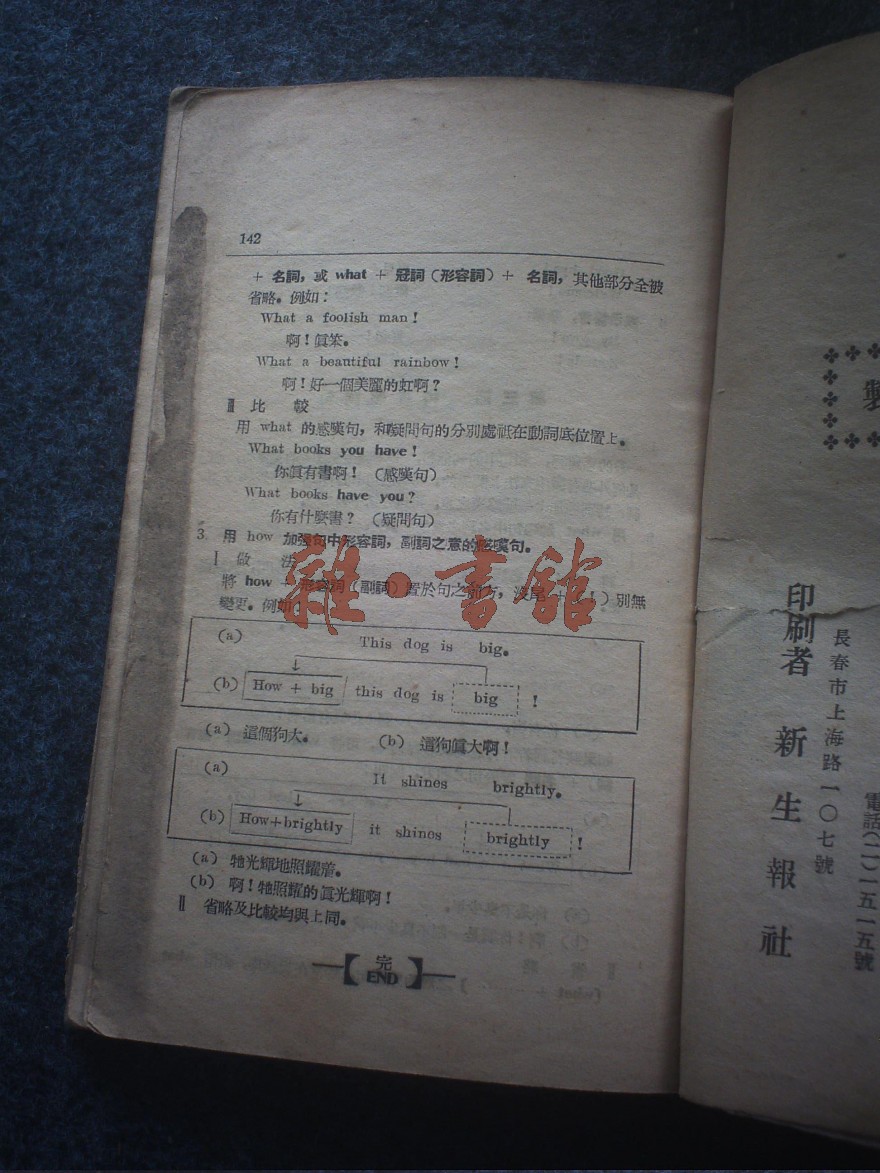 142
+ 名詞，或 what + 冠詞（形容詞）+ 名詞，其他部分全被
省略。例如：
What a foolish man!
啊！眞笨。
What a beautiful rainbow!
啊！好一個美麗的虹啊？
Ⅲ 比 較
用 what 的感嘆句，和疑問句的分別處祇在動詞底位置上。
What books you have!
你眞有書啊！（感嘆句）
What books have you?
你有什麼書？（疑問句）
3. 用 how 加强句中形容詞，副詞之意的感嘆句。
Ⅰ 做 法
將 how + 形容詞（副詞）置於句之前方，沒尾 +（！）別無
變更。例如：
雜·書館
(a) This dog is big.
(b) How + big this dog is big !
(a) 這個狗大。 (b) 這狗眞大啊！
(a) It shines brightly.
(b) How+brightly it shines brightly !
(a) 牠光輝地照耀着。
(b) 啊！牠照耀的眞光輝啊！
Ⅱ 省略及比較均與上同。
【完 END】
印刷者 新生報社
長春市上海路一〇七號
電話(二)一五一五號